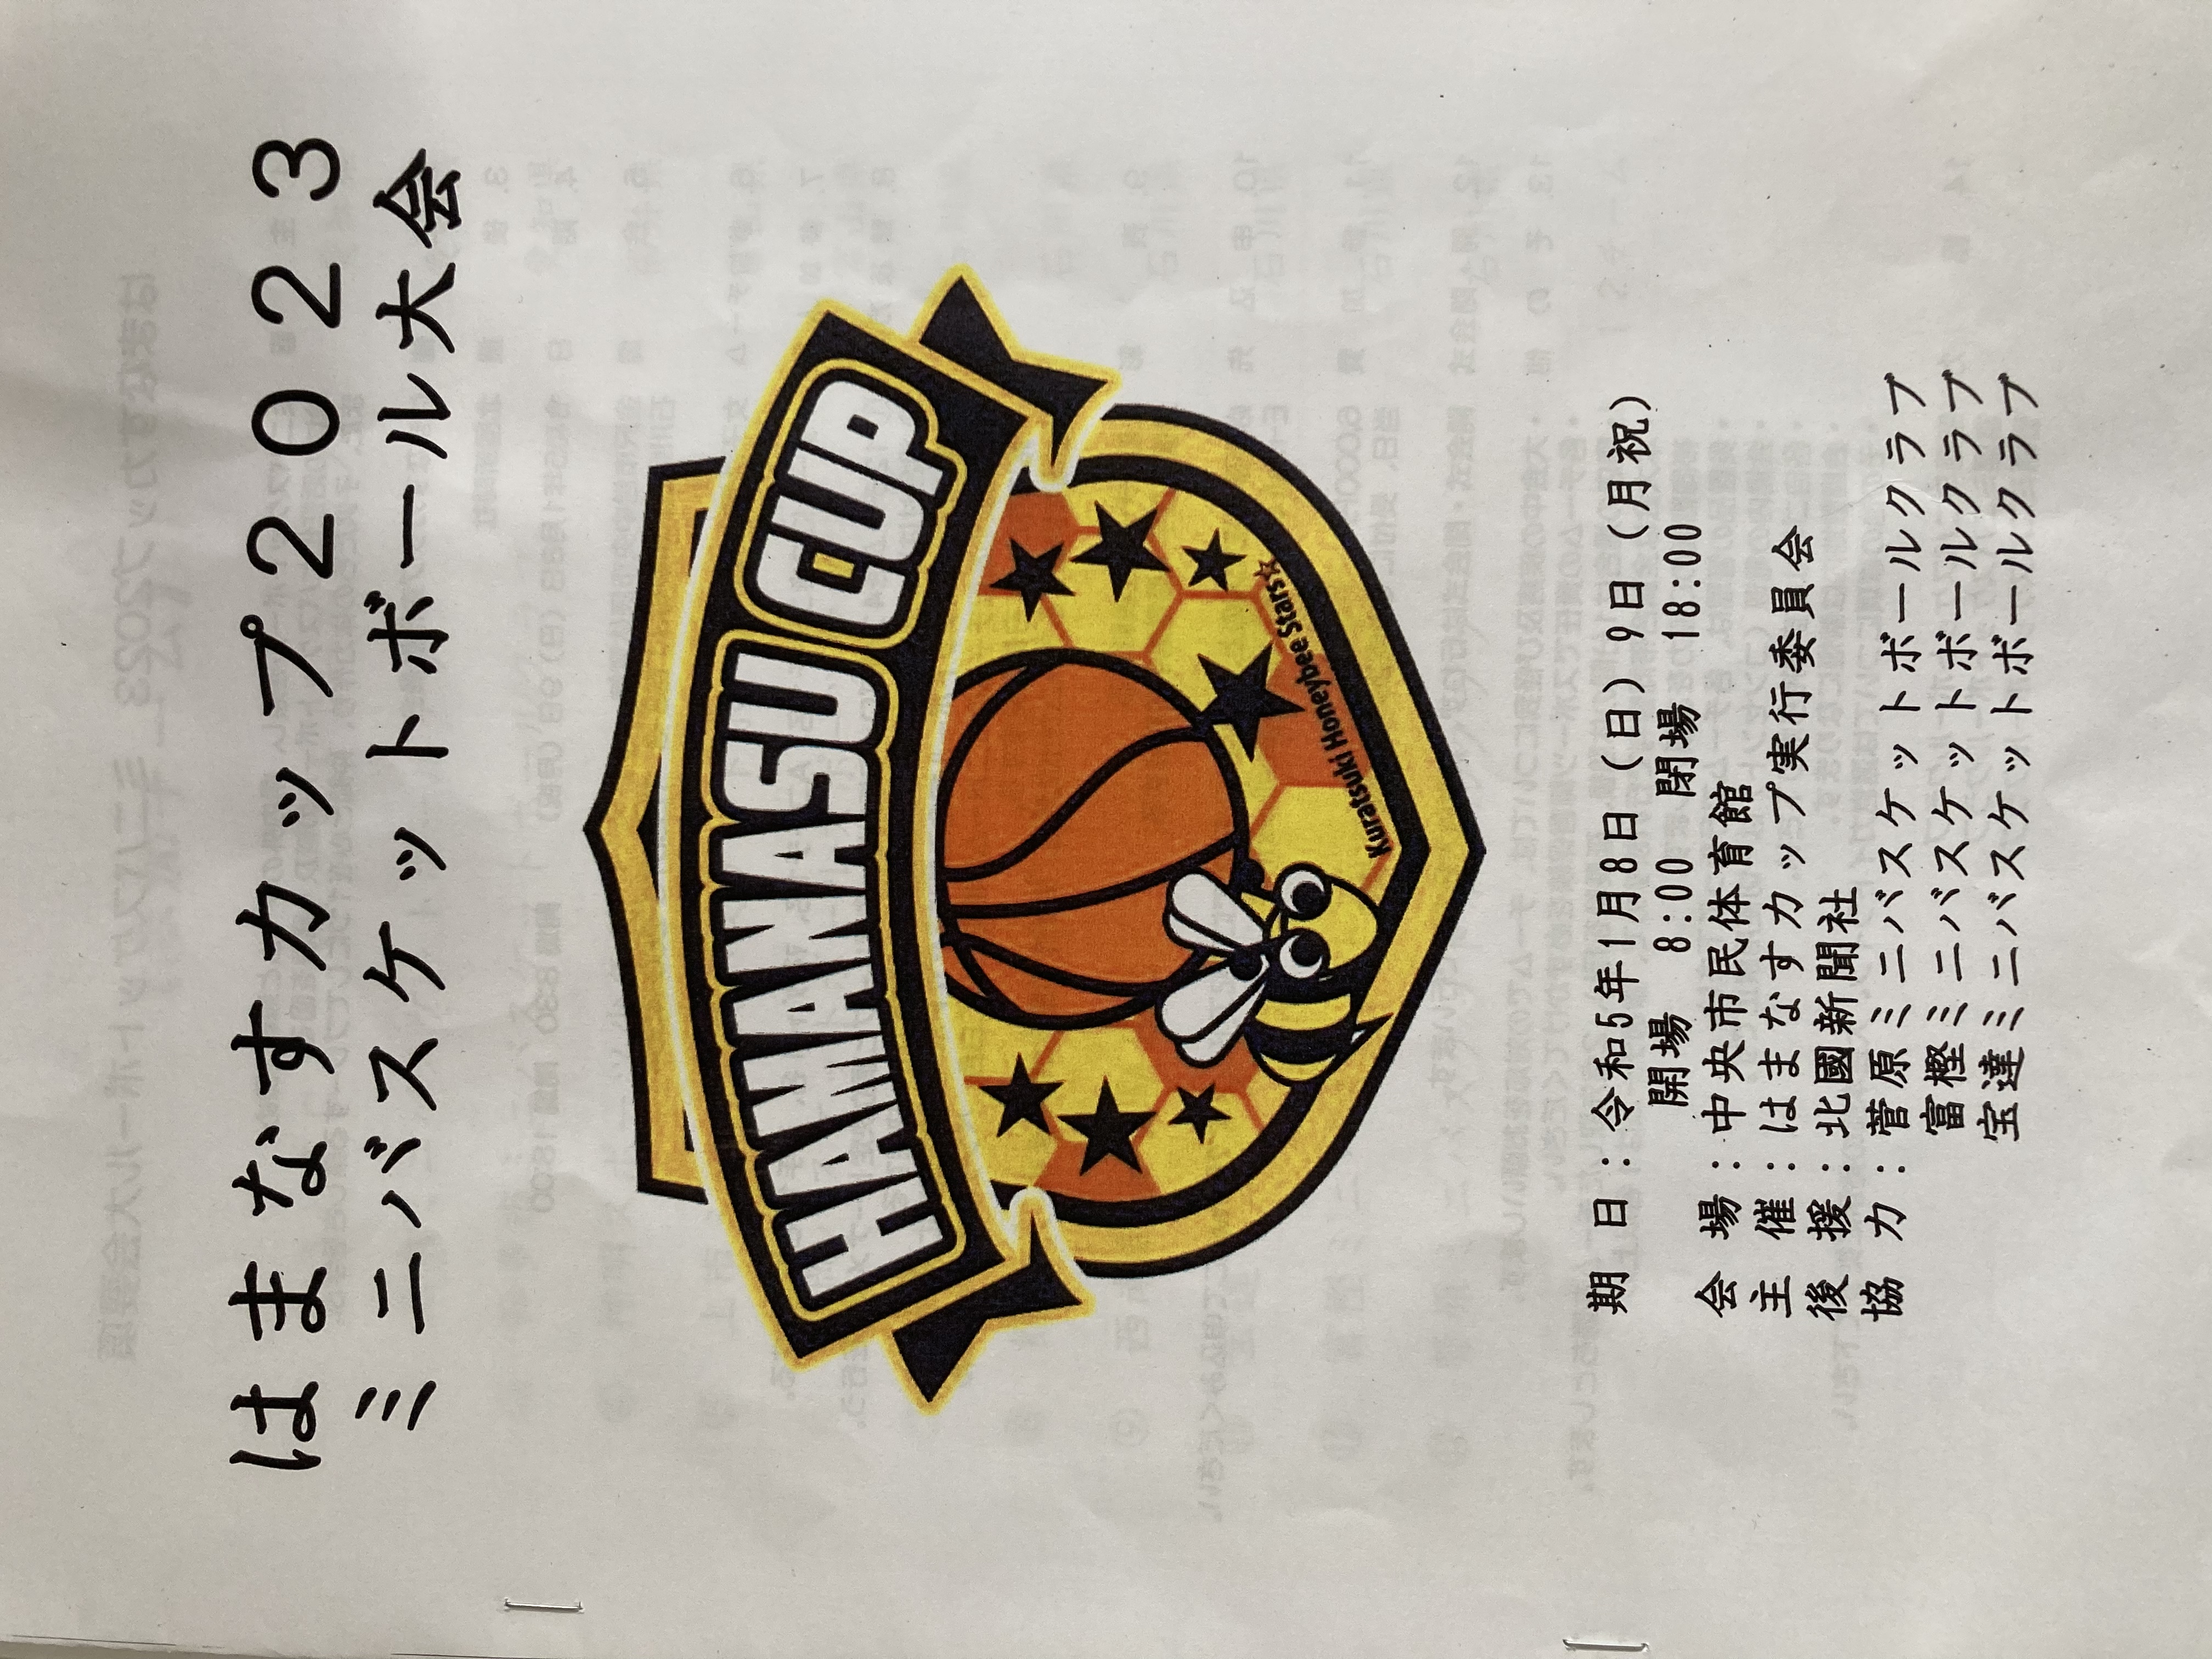 はまなすカップ2023
ミニバスケットボール大会
HAMANASU CUP
Kuratsuki Honeybee Stars☆
期　日：令和5年1月8日（日）9日（月祝）
開場　8:00　閉場　18:00
会　場：中央市民体育館
主　催：はまなすカップ実行委員会
後　援：北國新聞社
協　力：菅原ミニバスケットボールクラブ
富樫ミニバスケットボールクラブ
宝達ミニバスケットボールクラブ